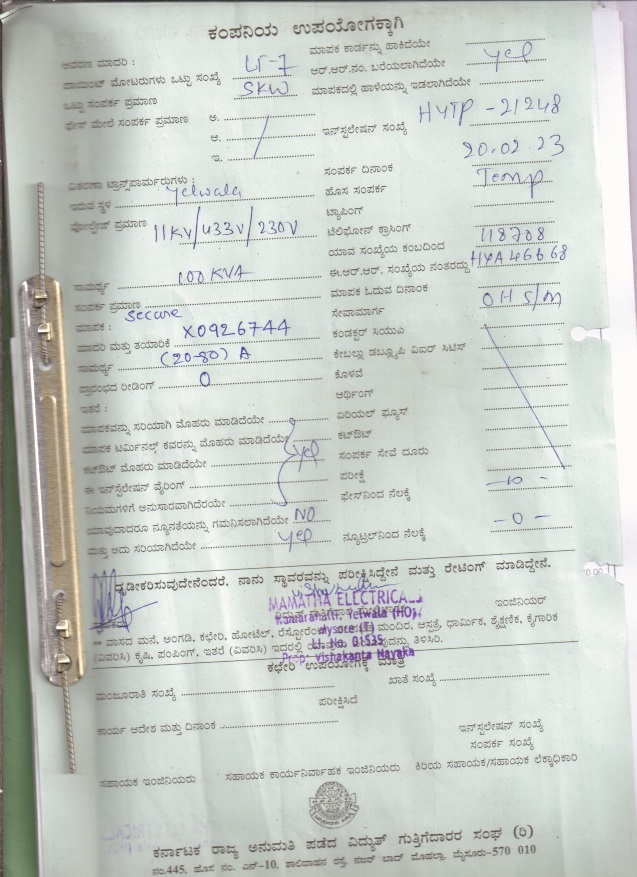 ಕಂಪನಿಯ ಉಪಯೋಗಕ್ಕಾಗಿ
ಆವರಣ ಮಾದರಿ : LT-7 ಮಾಪಕ ಕಾರ್ಡನ್ನು ಹಾಕಿದೆಯೇ
ಪಾಯಿಂಟ್ ಮೋಟರುಗಳು ಒಟ್ಟು ಸಂಖ್ಯೆ ಆರ್.ಆರ್.ನಂ. ಬರೆಯಲಾಗಿದೆಯೇ yes
ಒಟ್ಟು ಸಂಪರ್ಕ ಪ್ರಮಾಣ 5KW ಮಾಪಕದಲ್ಲಿ ಹಾಳೆಯನ್ನು ಇಡಲಾಗಿದೆಯೇ
ಫೇಸ್ ಮೇಲೆ ಸಂಪರ್ಕ ಪ್ರಮಾಣ ಅ.
ಆ. ಇನ್‌ಸ್ಟಲೇಷನ್ ಸಂಖ್ಯೆ HYTP -21248
ಇ.
ಸಂಪರ್ಕ ದಿನಾಂಕ 20.02.23
ವಿತರಣಾ ಟ್ರಾನ್ಸ್‌ಫಾರ್ಮರುಗಳು :
ಇರುವ ಸ್ಥಳ Yelwala ಹೊಸ ಸಂಪರ್ಕ Temp
ವೋಲ್ಟೇಜ್ ಪ್ರಮಾಣ 11KV/433V/230V ಟ್ಯಾಪಿಂಗ್
ಟೆಲಿಫೋನ್ ಕ್ರಾಸಿಂಗ್
ಯಾವ ಸಂಖ್ಯೆಯ ಕಂಬದಿಂದ 118708
ಸಾಮರ್ಥ್ಯ 100 KVA ಈ.ಆರ್.ಆರ್. ಸಂಖ್ಯೆಯ ನಂತರದ್ದು HYA 46668
ಸಂಪರ್ಕ ಪ್ರಮಾಣ ಮಾಪಕ ಓದುವ ದಿನಾಂಕ
ಮಾಪಕ : Secure ಸೇವಾಮಾರ್ಗ OH S/M
ಮಾದರಿ ಮತ್ತು ತಯಾರಿಕೆ X0926744 ಕಂಡಕ್ಟರ್ ಸಿಯುವಿ
ಸಾಮರ್ಥ್ಯ (20-80) A ಕೇಬಲ್ಲು ಡಬ್ಲ್ಯೂಪಿ ವಿಐರ್ ಸಿಟಿಸ್
ಪ್ರಾರಂಭದ ರೀಡಿಂಗ್ 0 ಕೊಳವೆ
ಇತರೆ : ಆರ್ಥಿಂಗ್
ಮಾಪಕವನ್ನು ಸರಿಯಾಗಿ ಮೊಹರು ಮಾಡಿದೆಯೇ ಏರಿಯಲ್ ಫ್ಯೂಸ್
ಮಾಪಕ ಟರ್ಮಿನಲ್ಸ್ ಕವರನ್ನು ಮೊಹರು ಮಾಡಿದೆಯೇ ಕಟ್‌ಔಟ್
ಕಟ್‌ಔಟ್ ಮೊಹರು ಮಾಡಿದೆಯೇ yes ಸಂಪರ್ಕ ಸೇವೆ ದೂರು
ಈ ಇನ್‌ಸ್ಟಲೇಷನ್ ವೈರಿಂಗ್ ಪರೀಕ್ಷೆ
ನಿಯಮಗಳಿಗೆ ಅನುಸಾರವಾಗಿದೆಯೇ ಫೇಸ್‌ನಿಂದ ನೆಲಕ್ಕೆ — 10 -
ಯಾವುದಾದರೂ ನ್ಯೂನತೆಯನ್ನು ಗಮನಿಸಲಾಗಿದೆಯೇ NO
ಮತ್ತು ಅದು ಸರಿಯಾಗಿದೆಯೇ yes ನ್ಯೂಟ್ರಲ್‌ನಿಂದ ನೆಲಕ್ಕೆ — 0 —
ದೃಢೀಕರಿಸುವುದೇನೆಂದರೆ, ನಾನು ಸ್ಥಾವರವನ್ನು ಪರೀಕ್ಷಿಸಿದ್ದೇನೆ ಮತ್ತು ರೇಟಿಂಗ್ ಮಾಡಿದ್ದೇನೆ.
MAMATHA ELECTRICALS
ಇಂಜಿನಿಯರ್
Kumarahalli, Yelwala (HO),
Mysore (T)
LL No. 01535
Prop. Vishakanta Nayaka
** ವಾಸದ ಮನೆ, ಅಂಗಡಿ, ಕಛೇರಿ, ಹೋಟೆಲ್, ಮಂದಿರ, ಆಸ್ಪತ್ರೆ, ಧಾರ್ಮಿಕ, ಶೈಕ್ಷಣಿಕ, ಕೈಗಾರಿಕೆ
(ವಿವರಿಸಿ) ಕೃಷಿ, ಪಂಪಿಂಗ್, ಇತರೆ (ವಿವರಿಸಿ) ಇದರಲ್ಲಿ ತಿಳಿಸಿರಿ.
ಕಛೇರಿ ಉಪಯೋಗಕ್ಕೆ ಮಾತ್ರ
ಮಂಜೂರಾತಿ ಸಂಖ್ಯೆ ಖಾತೆ ಸಂಖ್ಯೆ
ಪರೀಕ್ಷಿಸಿದೆ
ಕಾರ್ಯ ಆದೇಶ ಮತ್ತು ದಿನಾಂಕ ಇನ್‌ಸ್ಟಲೇಷನ್ ಸಂಖ್ಯೆ
ಸಂಪರ್ಕ ಸಂಖ್ಯೆ
ಸಹಾಯಕ ಇಂಜಿನಿಯರು ಸಹಾಯಕ ಕಾರ್ಯನಿರ್ವಾಹಕ ಇಂಜಿನಿಯರು ಕಿರಿಯ ಸಹಾಯಕ/ಸಹಾಯಕ ಲೆಕ್ಕಾಧಿಕಾರಿ
ಕರ್ನಾಟಕ ರಾಜ್ಯ ಅನುಮತಿ ಪಡೆದ ವಿದ್ಯುತ್ ಗುತ್ತಿಗೆದಾರರ ಸಂಘ (ರಿ)
ನಂ.445, ಹೊಸ ನಂ. ಎನ್-10, ಶಾಲಿವಾಹನ ರಸ್ತೆ, ನಜರ್ ಬಾದ್ ಮೊಹಲ್ಲಾ, ಮೈಸೂರು-570 010